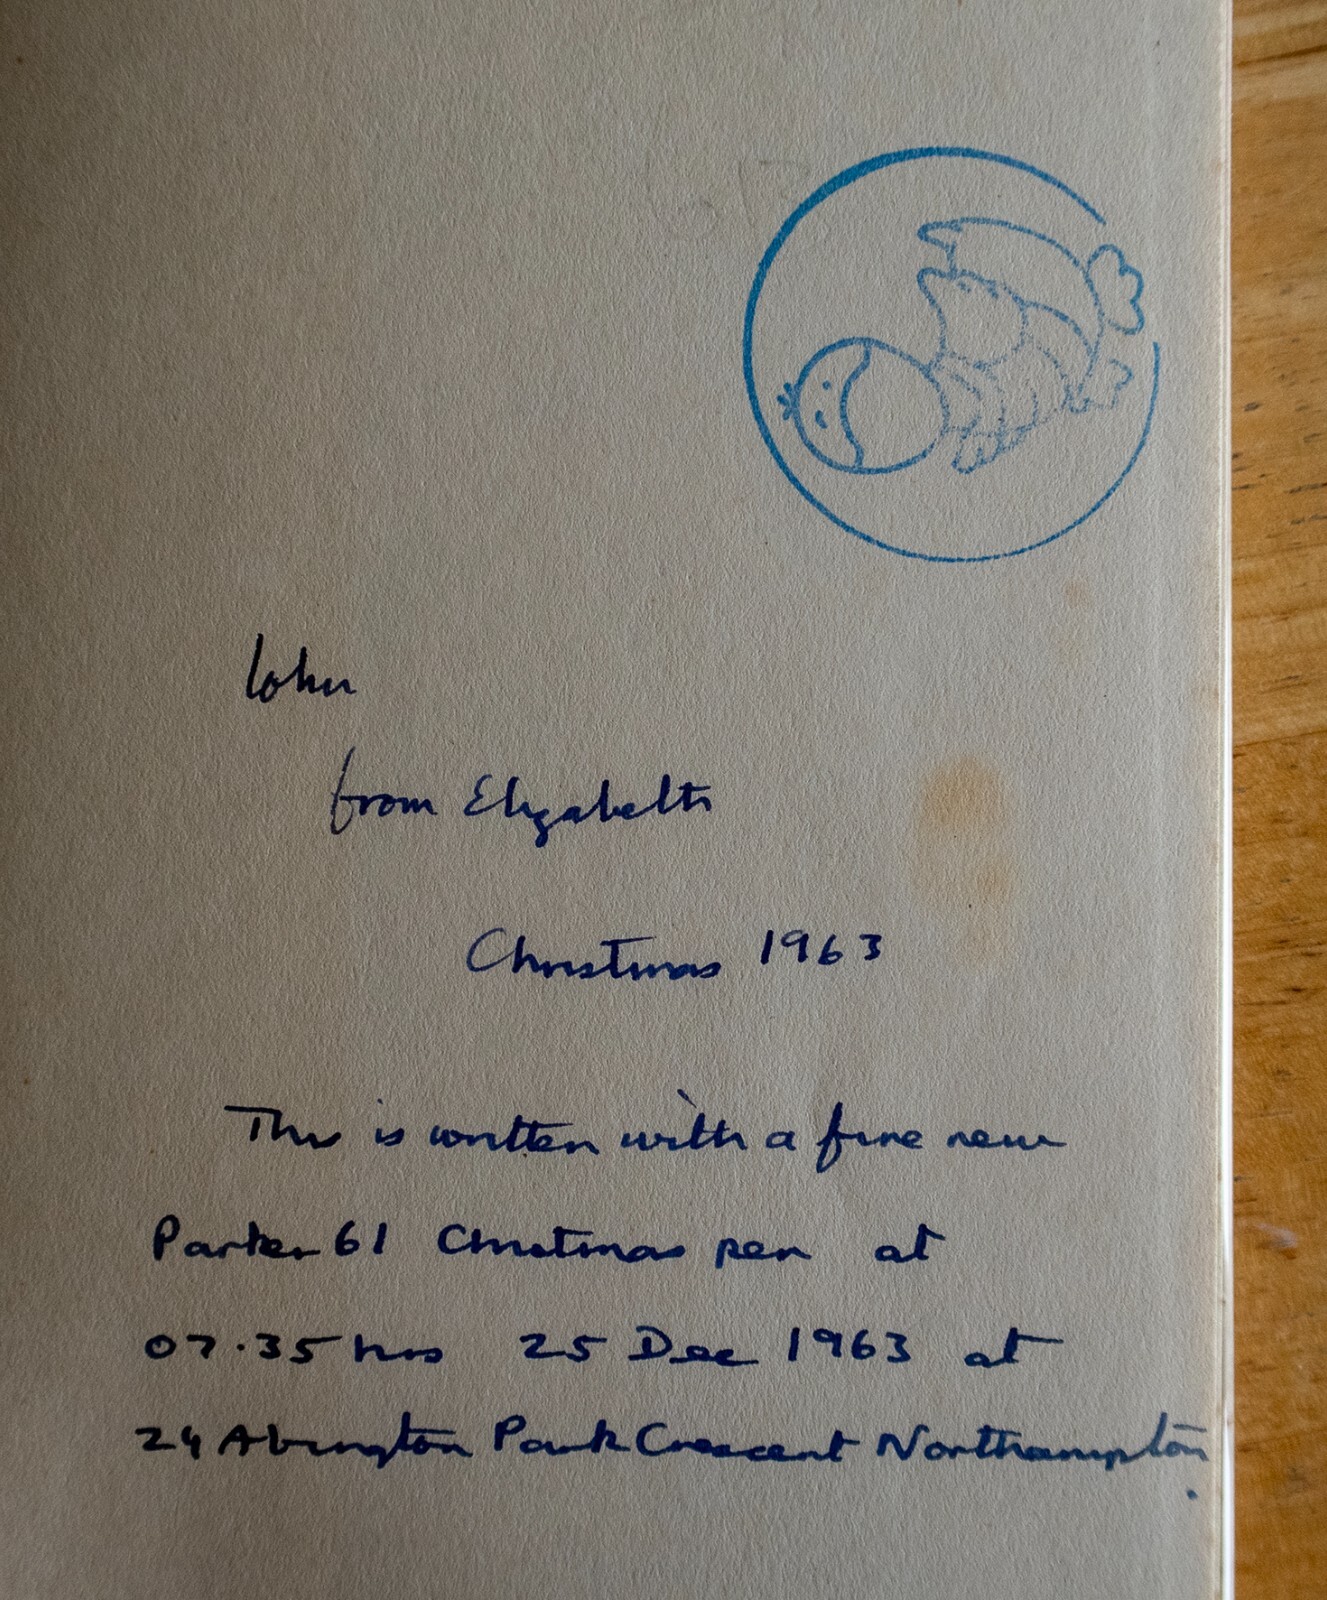 John
from Elizabeth
Christmas 1963
This is written with a fine new
Parker 61 Christmas pen at
07.35 hrs 25 Dec 1963 at
24 Abington Park Crescent Northampton.